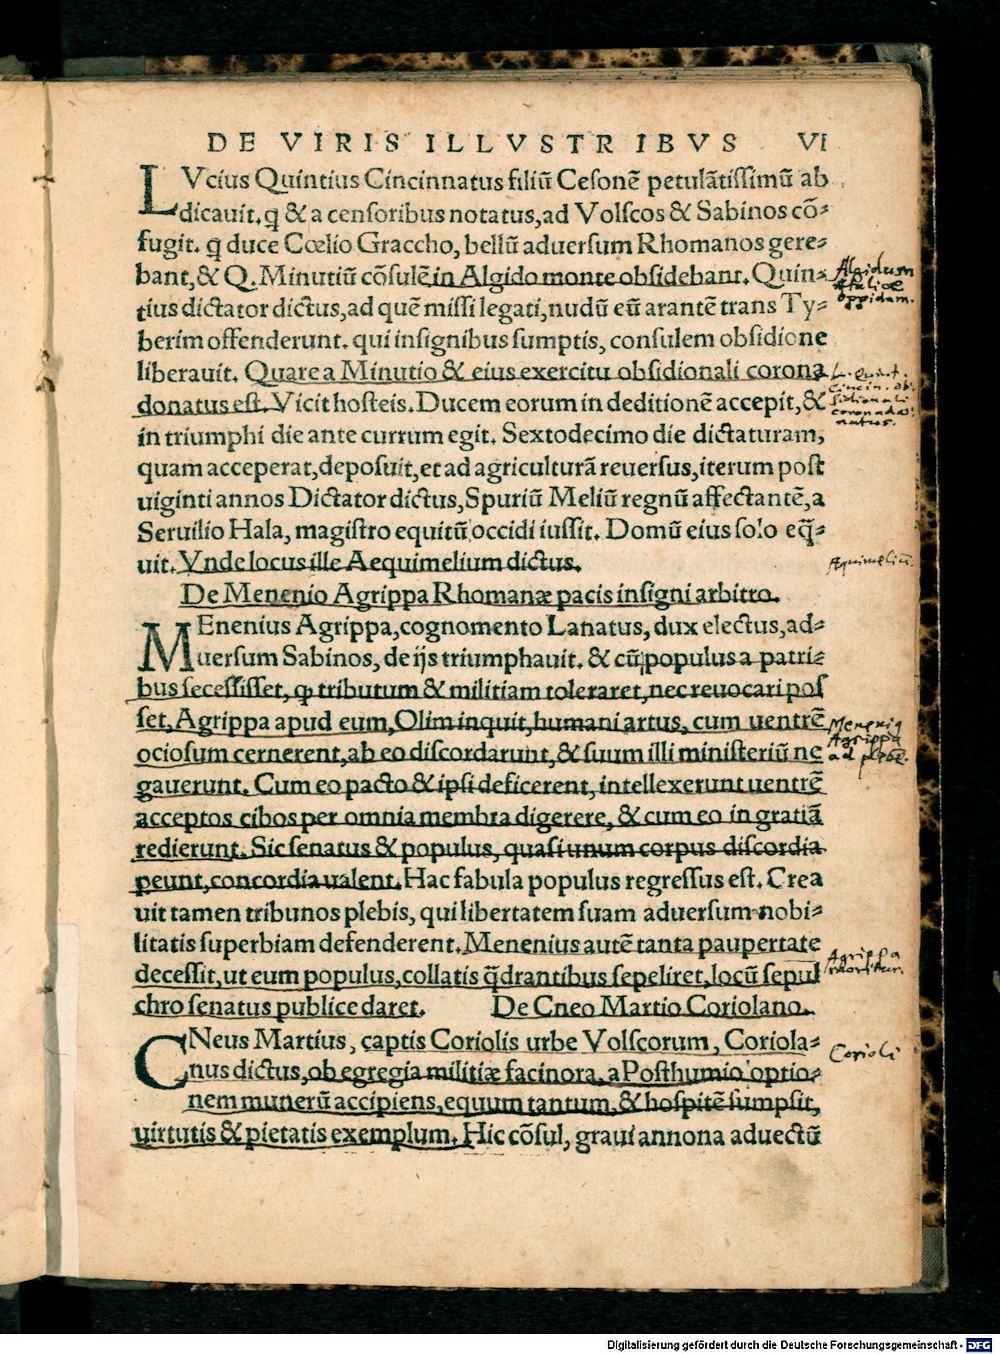 DE VIRIS ILLVSTRIBVS VI
LVcius Quintius Cincinnatus filiũ Cesonẽ petulãtissimũ ab
dicauit. q̃ & a censoribus notatus, ad Volscos & Sabinos cõ-
fugit. q̃ duce Cœlio Graccho, bellũ aduersum Rhomanos gere-
bant, & Q. Minutiũ cõsulẽ in Algido monte obsidebant. Quin-
tius dictator dictus, ad quẽ missi legati, nudũ eũ arantẽ trans Ty-
berim offenderunt. qui insignibus sumptis, consulem obsidione
liberauit. Quare a Minutio & eius exercitu obsidionali corona
donatus est. Vicit hosteis. Ducem eorum in deditionẽ accepit, &
in triumphi die ante currum egit. Sextodecimo die dictaturam,
quam acceperat, deposuit, et ad agriculturã reuersus, iterum post
uiginti annos Dictator dictus, Spuriũ Meliũ regnũ affectantẽ, a
Seruilio Hala, magistro equitũ occidi iussit. Domũ eius solo eq̃-
uit. Vnde locus ille Aequimelium dictus.
De Menenio Agrippa Rhomanæ pacis insigni arbitro.
MEnenius Agrippa, cognomento Lanatus, dux electus, ad-
uersum Sabinos, de ijs triumphauit. & cũ populus a patri-
bus secessisset, ꝙ tributum & militiam toleraret, nec reuocari pos
set, Agrippa apud eum, Olim inquit, humani artus, cum uentrẽ
ociosum cernerent, ab eo discordarunt, & suum illi ministeriũ ne
gauerunt. Cum eo pacto & ipsi deficerent, intellexerunt uentrẽ
acceptos cibos per omnia membra digerere, & cum eo in gratiã
redierunt. Sic senatus & populus, quasi unum corpus discordia
peunt, concordia ualent. Hac fabula populus regressus est. Crea
uit tamen tribunos plebis, qui libertatem suam aduersum nobi-
litatis superbiam defenderent. Menenius autẽ tanta paupertate
decessit, ut eum populus, collatis q̃drantibus sepeliret, locũ sepul
chro senatus publice daret. De Cneo Martio Coriolano.
CNeus Martius, captis Coriolis urbe Volscorum, Coriola-
nus dictus, ob egregia militiæ facinora, a Posthumio optio-
nem munerũ accipiens, equum tantum, & hospitẽ sumpsit,
uirtutis & pietatis exemplum. Hic cõsul, graui annona aduectũ
Algidum
Italiæ
oppidum.
L. Quint.
Cincin. ob
sidionali
corona do
natus.
Æquimeliũ.
Menenius
Agrippa
ad plebẽ.
Agrippa
moritur.
Corioli
Digitalisierung gefördert durch die Deutsche Forschungsgemeinschaft - DFG